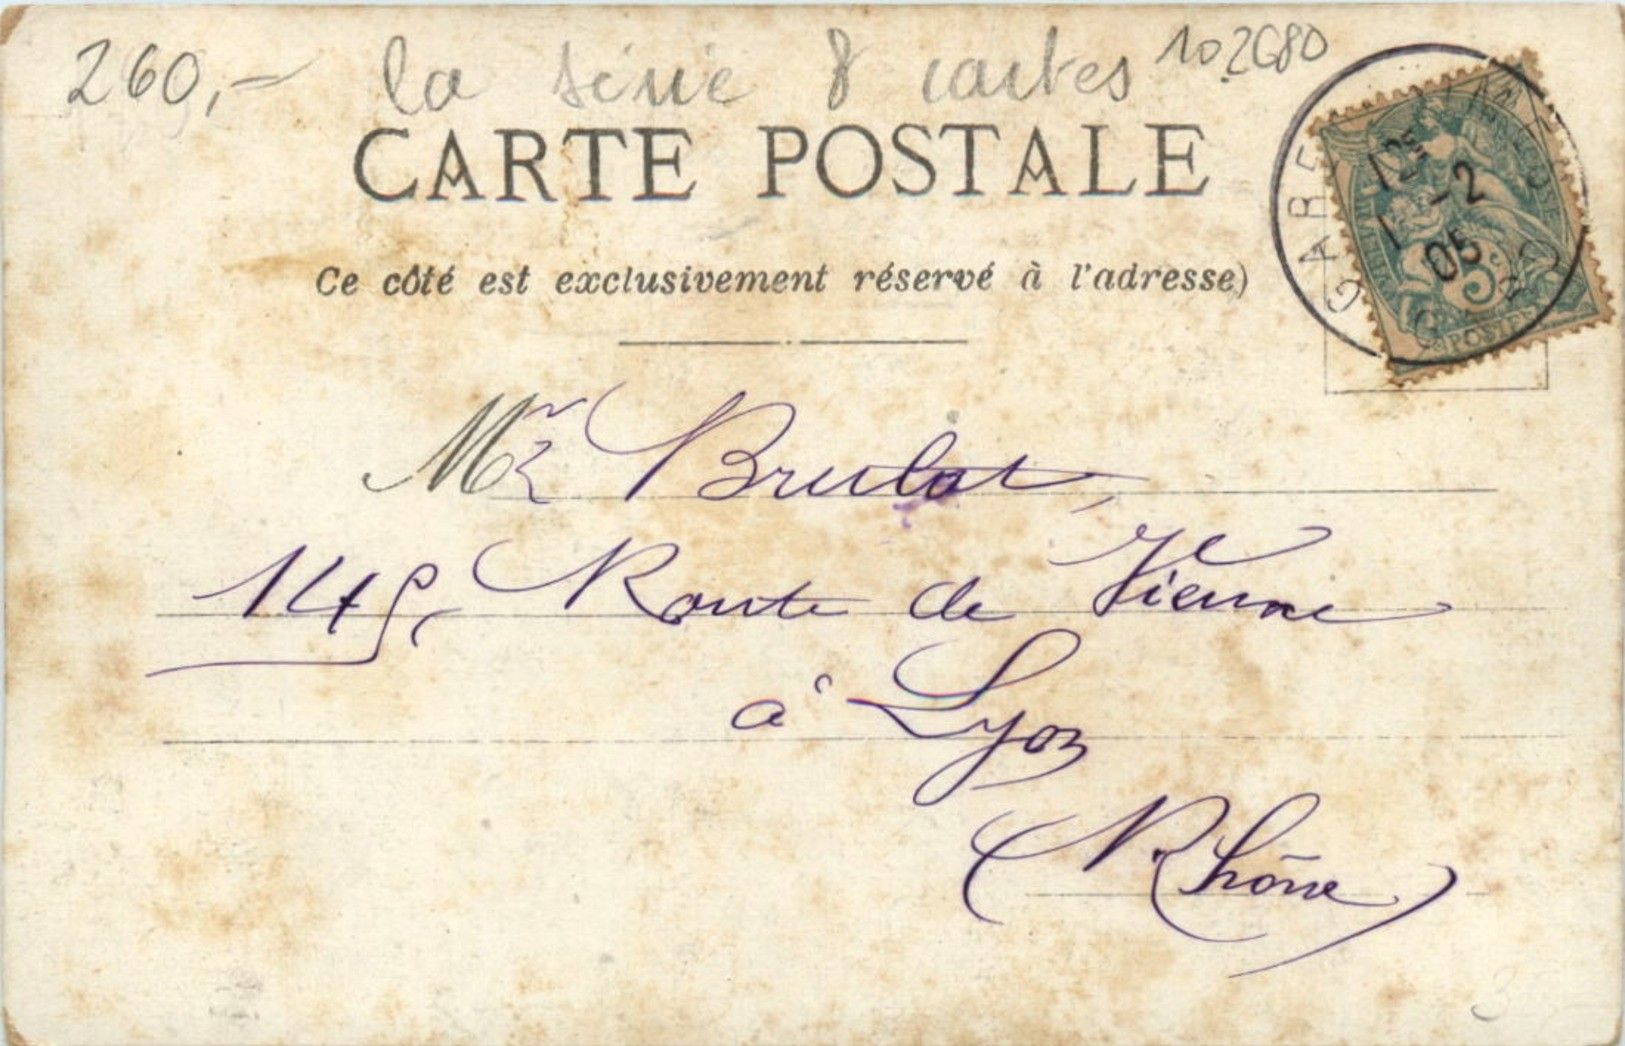 260,- la série 8 cartes 102680
CARTE POSTALE
Ce côté est exclusivement réservé à l'adresse)
GARE
12
1 -2
05
5c
POSTES
Mr Brulat,
145, Route de Vienne
à Lyon
(Rhône)
3